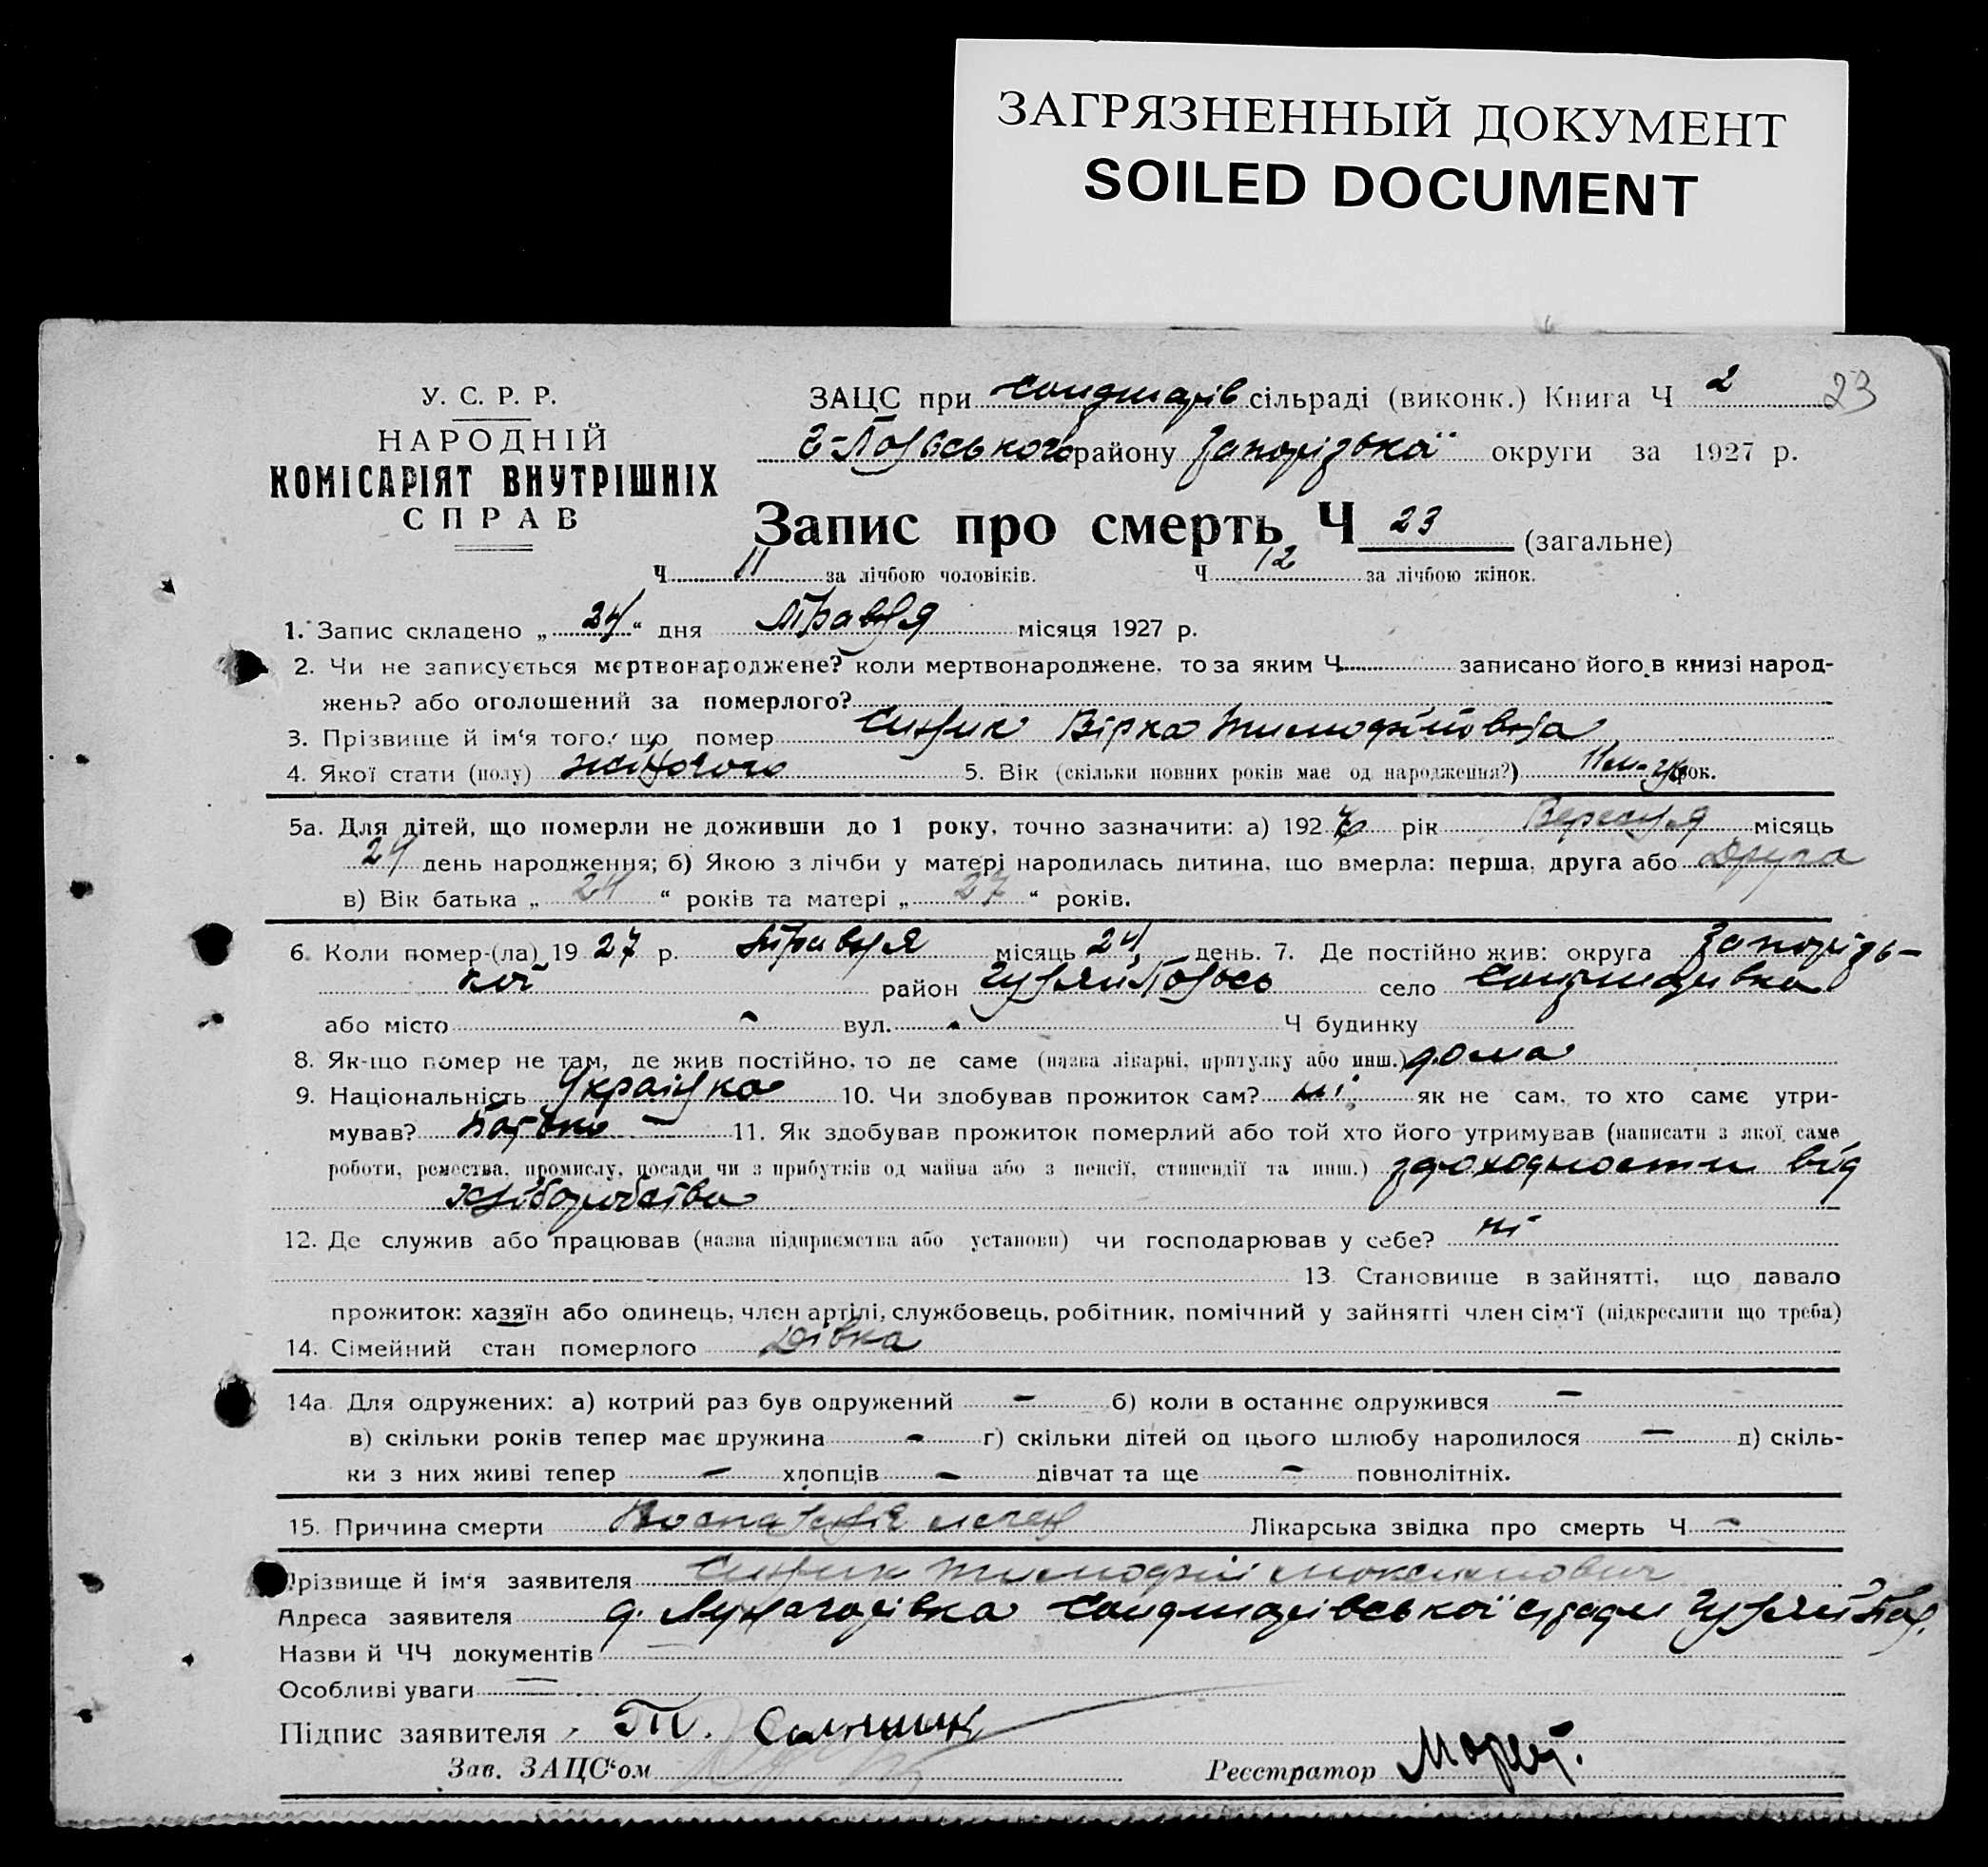 ЗАГРЯЗНЕННЫЙ ДОКУМЕНТ
SOILED DOCUMENT
У. С. Р. Р.
НАРОДНІЙ
КОМІСАРІЯТ ВНУТРІШНІХ
СПРАВ
ЗАЦС при сільраді (виконк.) Книга Ч 2 23
району Запорізької округи за 1927 р.
Запис про смерть Ч 23 (загальне)
Ч 11 за лічбою чоловіків. Ч 12 за лічбою жінок.
1. Запис складено „ 24 “ дня травня місяця 1927 р.
2. Чи не записується мертвонароджене? коли мертвонароджене, то за яким Ч записано його в книзі народ-
жень? або оголошений за померлого?
3. Прізвище й ім‘я того, що помер Вірка Тимофіївна
4. Якої стати (полу) жіночого 5. Вік (скільки повних років має од народження?) рок.
5а. Для дітей, що померли не доживши до 1 року, точно зазначити: а) 192 рік Вересня місяць
24 день народження; б) Якою з лічби у матері народилась дитина, що вмерла: перша, друга або Друга
в) Вік батька „ 24 “ років та матері „ 27 “ років.
6. Коли помер-(ла) 19 27 р. травня місяць 24 день. 7. Де постійно жив: округа Запорізь-
кої район Гуляй село
або місто - вул. - Ч будинку
8. Як-що помер не там, де жив постійно, то де саме (назва лікарні, притулку або инш.) дома
9. Національність Українка 10. Чи здобував прожиток сам? ні як не сам, то хто саме утри-
мував? Батько — 11. Як здобував прожиток померлий або той хто його утримував (написати з якої саме
роботи, ремества, промислу, посади чи з прибутків од майна або з пенсії, стипендії та инш.) від
хліборобства
12. Де служив або працював (назва підприємства або установи) чи господарював у себе? ні
13. Становище в зайнятті, що давало
прожиток: хазяїн або одинець, член артілі, службовець, робітник, помічний у зайнятті член сім‘ї (підкреслити що треба)
14. Сімейний стан померлого Дівка
14а. Для одружених: а) котрий раз був одружений - б) коли в останнє одружився -
в) скільки років тепер має дружина - г) скільки дітей од цього шлюбу народилося — д) скіль-
ки з них живі тепер - хлопців - дівчат та ще - повнолітніх.
15. Причина смерти Лікарська звідка про смерть Ч -
Прізвище й ім‘я заявителя Тимофій
Адреса заявителя
Назви й ЧЧ документів —
Особливі уваги —
Підпис заявителя Т.
Зав. ЗАЦС‘ом Реєстратор